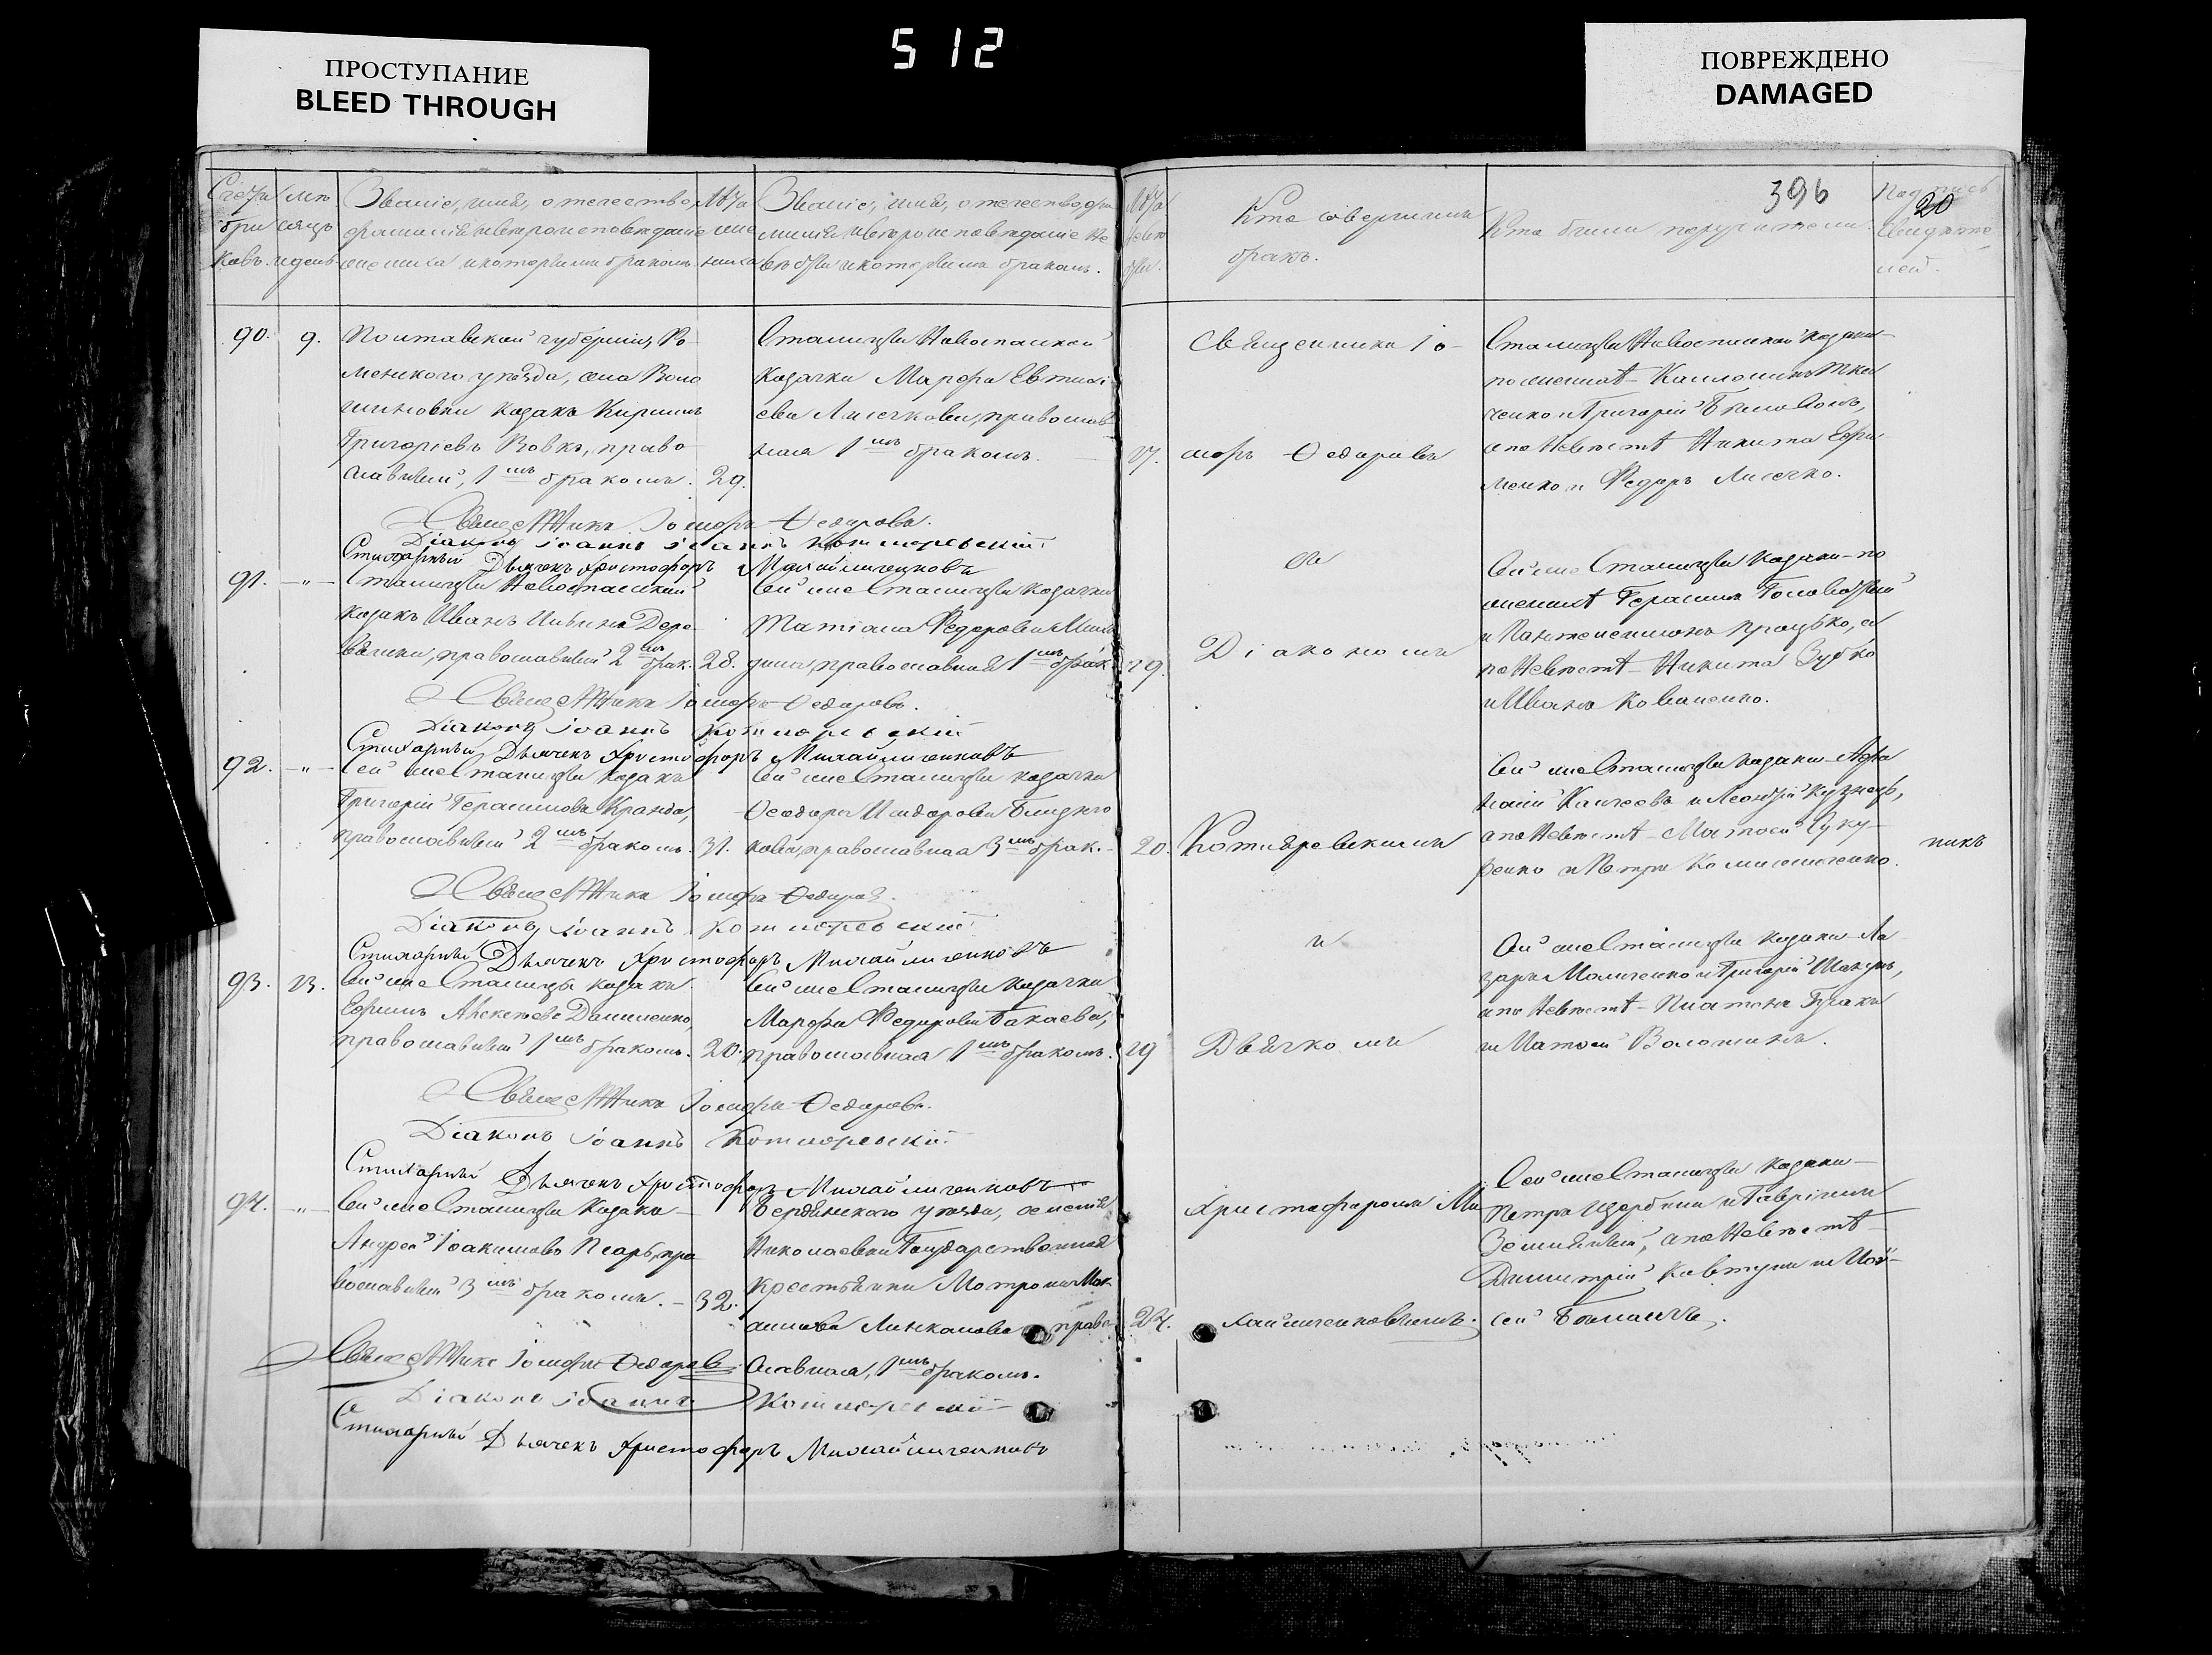 512
ПРОСТУПАНИЕ
BLEED THROUGH
ПОВРЕЖДЕНО
DAMAGED
396
20
Счетъ бра ковъ.
мѣ сяцъ и день.
Званіе, имя, отечество,
фамилія и вѣроисповѣданіе
жениха и которымъ бракомъ.
Лѣта жениха
Званіе, имя, отечество, фа
милія и вѣроисповѣданіе не
вѣсты и которымъ бракомъ.
Лѣта невѣсты.
Кто совершилъ
бракъ.
Кто были поручители.
Подпись
свидѣте
лей.
90. 9.
Полтавской губерніи, Ро
менского уѣзда, села Воло
шиновки козакъ Кириллъ
Григорьевъ Вовкъ, право
славный, 1мъ бракомъ. 29.
Станицы Новоспасской
козачка Марфа Евтихі
ева Лисечкова, православ
ная 1мъ бракомъ.
27.
Священникъ Іо
сифъ Ѳедоровъ
Станицы Новоспасской козаки
по женихѣ
ченко и Григорій Бѣловолъ,
а по невѣстѣ Никита Ефи
менко и Федоръ Лисечко.
Священникъ Іосифъ Ѳедоровъ.
Діаконъ Іоаннъ Котляревскій
Стихарный Дьячекъ Христофоръ Михайличенковъ
91. -"-
Станицы Новоспасской
козакъ Иванъ
православный 2мъ брак. 28.
Сей же Станицы козачка
Татіана Федорова
православная 1мъ брак.
19.
и
Діакономъ
Сей же Станицы козаки по
женихѣ Герасимъ Головатый
и Пантелеимонъ Процько, а
по невѣстѣ Никита Зубко
и Иванъ Коваленко.
Священникъ Іосифъ Ѳедоровъ.
Діаконъ Іоаннъ Котляревскій
Стихарный Дьячекъ Христофоръ Михайличенковъ
92. -"-
Сей же Станицы козакъ
Григорій Герасимовъ Кранда,
православный 2мъ бракомъ. 31.
Сей же Станицы козачка
Ѳеодора
православная 3мъ брак.
20.
Котляревскимъ
Сей же Станицы козаки Афа
насій и Леонтій Кузнецъ,
а по невѣстѣ Матвей Суку
ренко и Петръ
Священникъ Іосифъ Ѳедоровъ.
Діаконъ Іоаннъ Котляревскій
Стихарный Дьячекъ Христофоръ Михайличенковъ
93. 23.
Сей же Станицы козакъ
Ефимъ Алексѣевъ Даниленко,
православный 1мъ бракомъ. 20.
Сей же Станицы козачка
Марфа Федорова Бакаева,
православная 1мъ бракомъ.
19
и
Дьячкомъ
Сей же Станицы козаки Ла
зарь и Григорій
а по невѣстѣ Платонъ
и Матвей Волошинъ.
Священникъ Іосифъ Ѳедоровъ.
Діаконъ Іоаннъ Котляревскій
Стихарный Дьячекъ Христофоръ Михайличенковъ
94. -"-
Сей же Станицы Козакъ
Андрей Іоакимовъ Писарь, пра
вославный 3мъ бракомъ. 32.
Бердянского уѣзда, селенія
Николаевки Государственная
крестьянка Матрона Мак
симова право
славная, 1мъ бракомъ.
24.
Христофоромъ Ми
хайличенковымъ.
Сей же Станицы козаки
Петръ Щербина и Гавріилъ
а по невѣстѣ
Димитрій Ковтунъ и Мой
сей
Священникъ Іосифъ Ѳедоровъ
Діаконъ Іоаннъ Котляревскій
Стихарный Дьячекъ Христофоръ Михайличенковъ